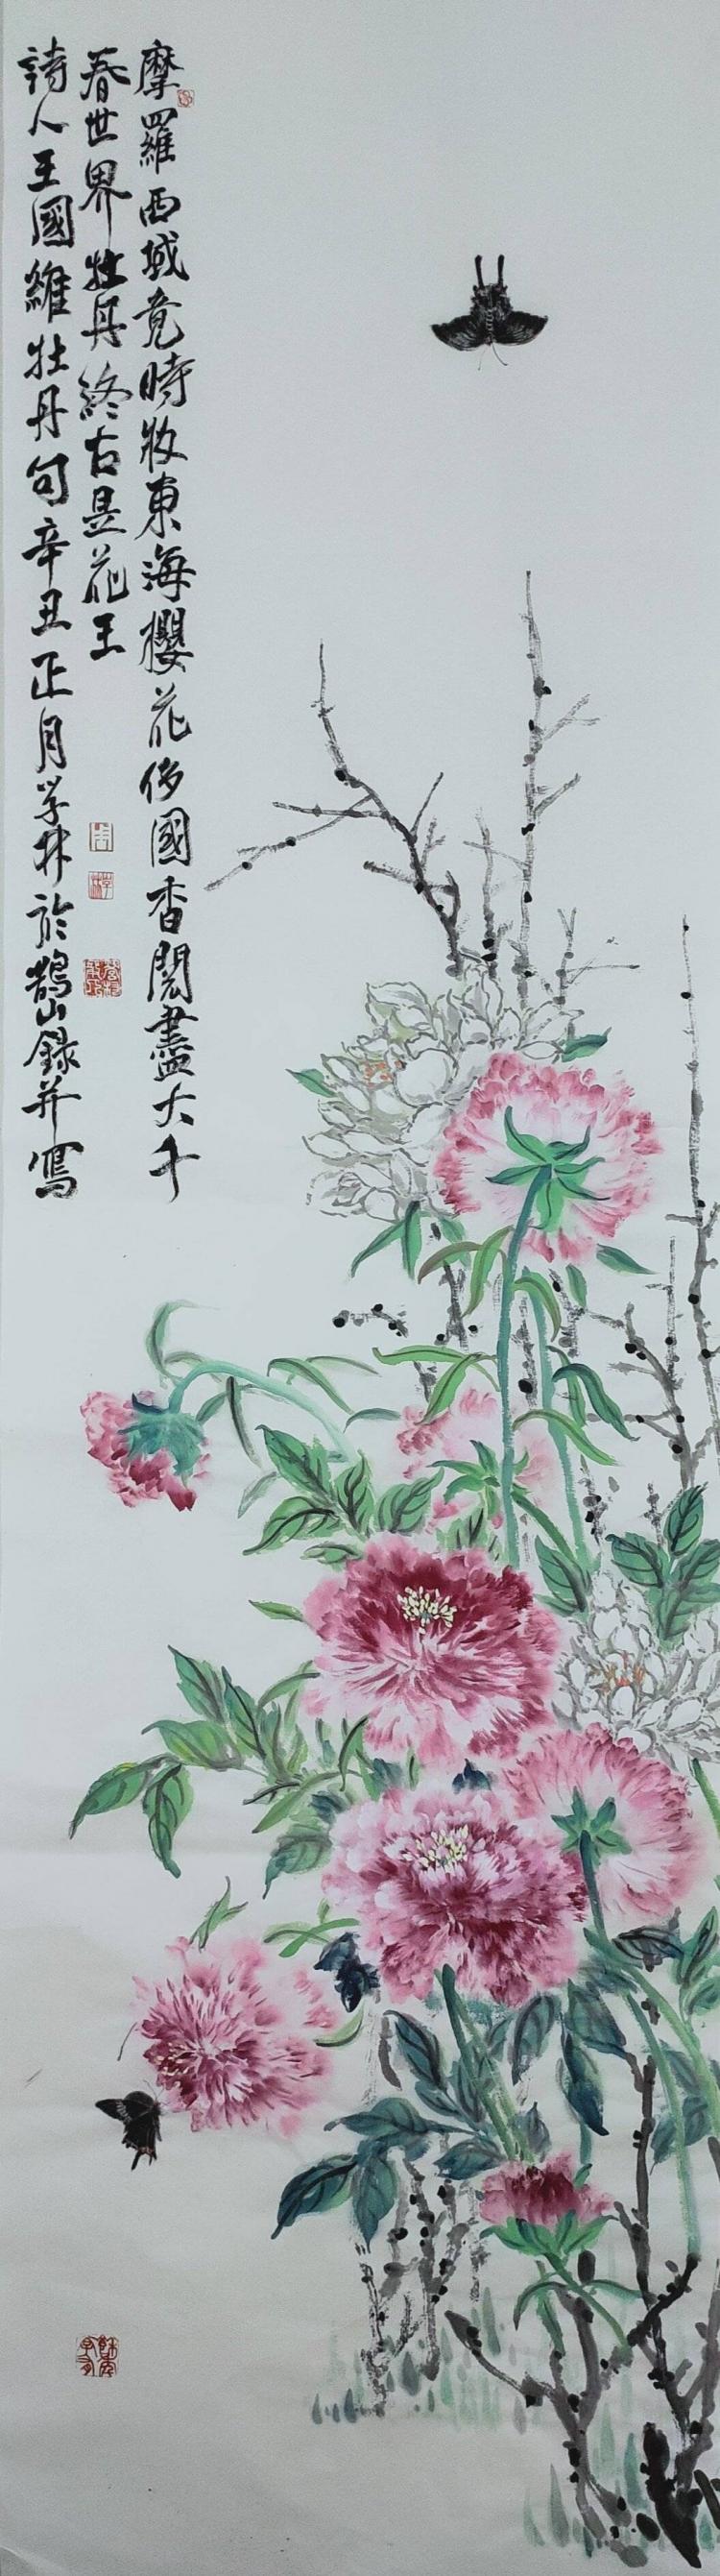 摩羅西域竟時妝東海櫻花侈國香閱盡大千
春世界牡丹終古是花王
詩人王國維牡丹句辛丑正月学林於鵲山錄并寫